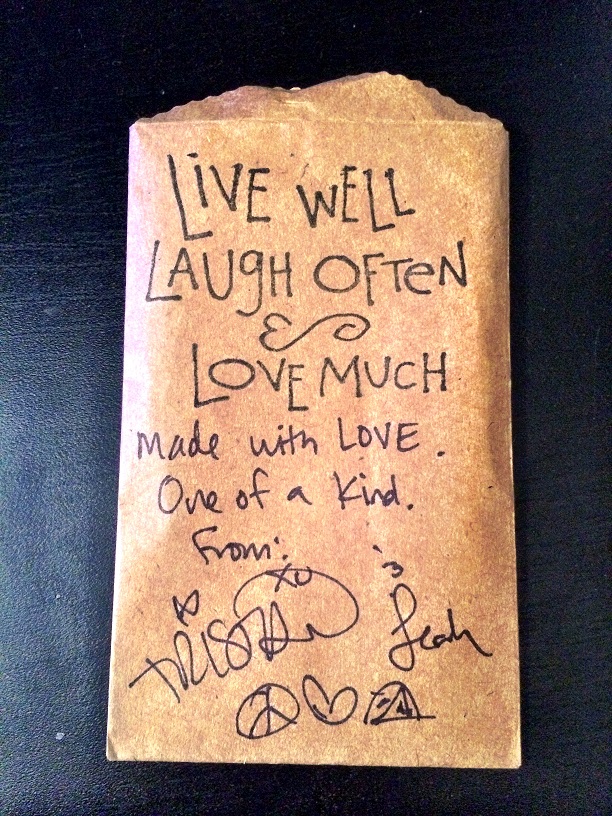 LiVE WELL
LAUgH OFTeN
&
LOVE MUCH
made with LOVE.
One of a kind.
From:
XO
TRISTAN
Leah